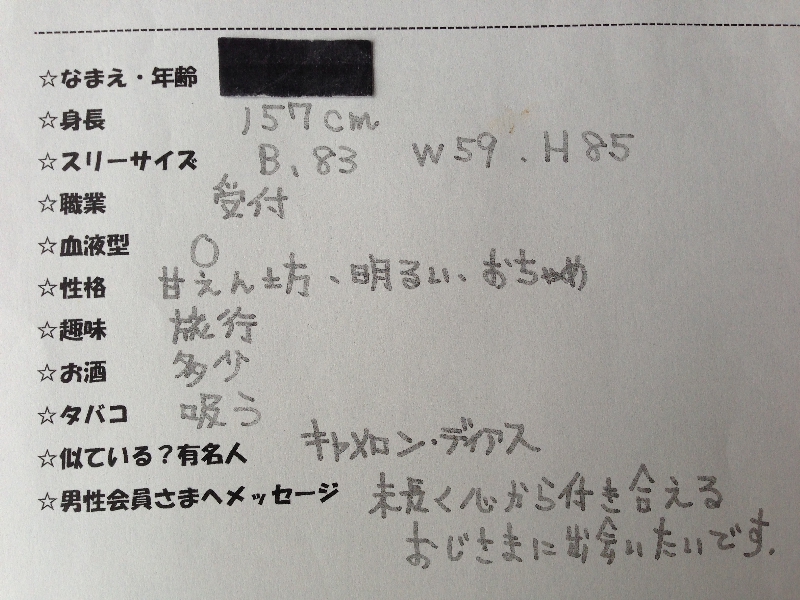 ☆なまえ・年齢
☆身長 157cm
☆スリーサイズ B、83 W59、H85
☆職業 受付
☆血液型 O
☆性格 甘えん坊、明るい、おちゃめ
☆趣味 旅行
☆お酒 多少
☆タバコ 吸う
☆似ている？有名人 キャメロン・ディアス
☆男性会員さまへメッセージ 末長く心から付き合える
おじさまに出会いたいです。